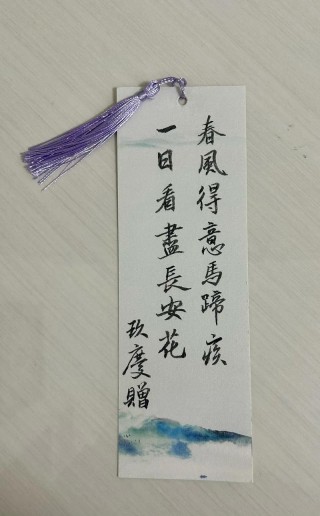 春風得意馬蹄疾
一日看盡長安花
玖慶贈